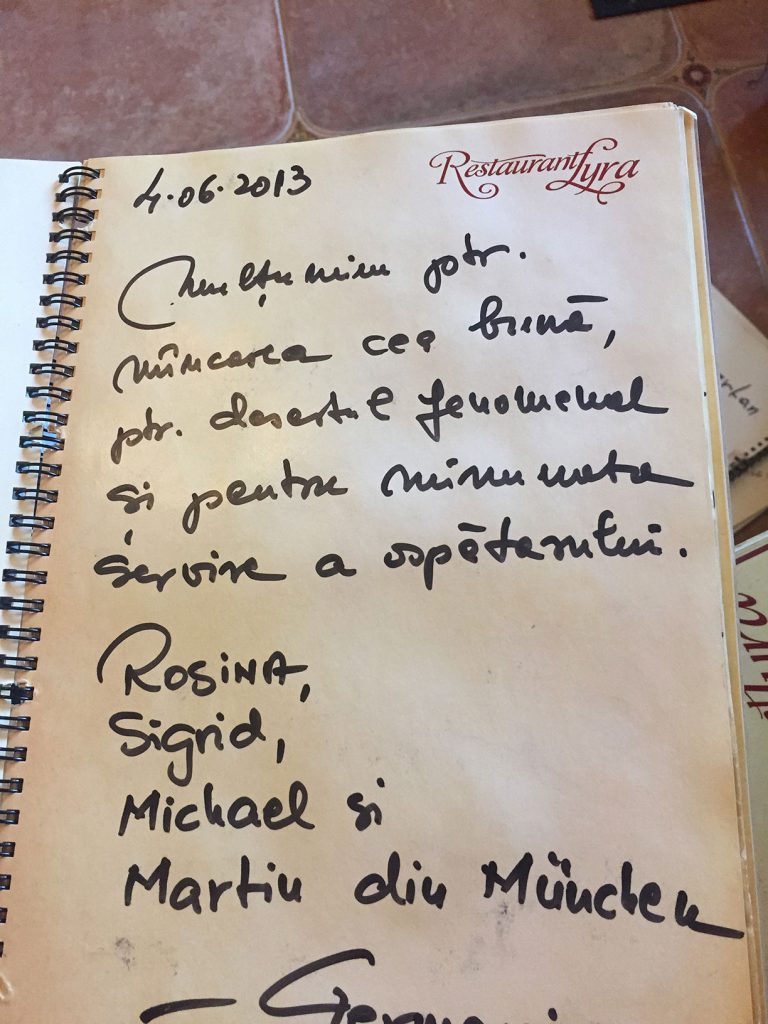 Restaurant Lyra
4.06.2013
Mulțumim ptr.
mîncarea cea bună,
ptr. desertul fenomenal
și pentru minunata
servire a ospătarului.
Rosina,
Sigrid,
Michael și
Martin din München